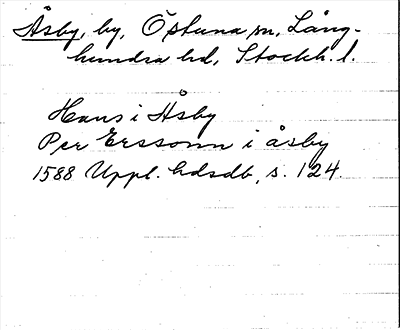 Åsby, by, Östuna sn, Lång-
hundra hd, Stockh. l.
Hans i Åsby
Per Erssonn i åsby
1588 Uppl. hdsdb, s. 124.